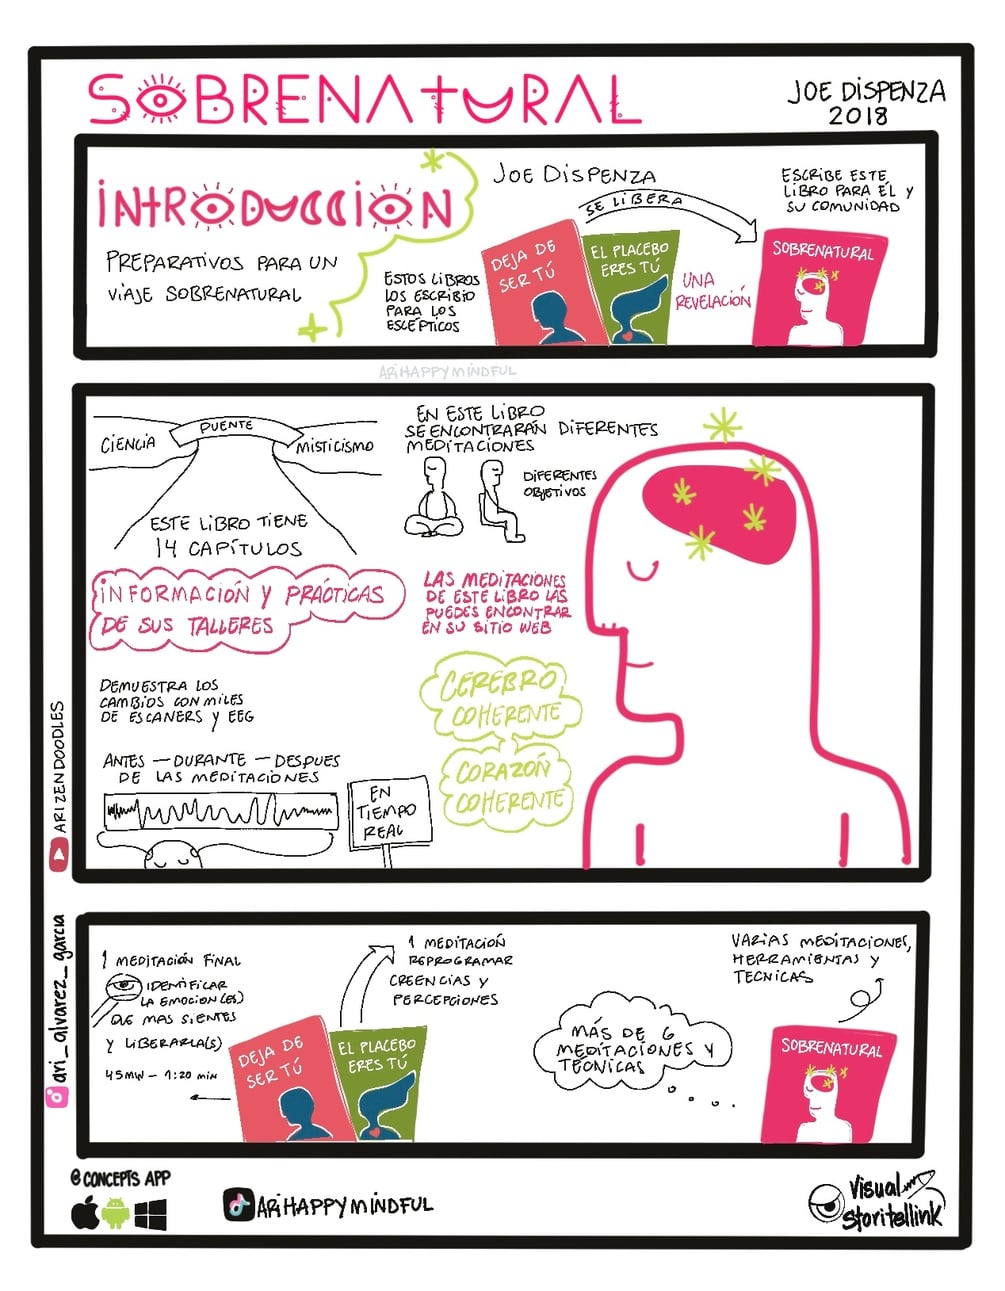 SOBRENATURAL
JOE DISPENZA
2018
INTRODUCCIÓN
PREPARATIVOS PARA UN
VIAJE SOBRENATURAL
JOE DISPENZA
SE LIBERA
ESTOS LIBROS
LOS ESCRIBIO
PARA LOS
ESCÉPTICOS
DEJA DE
SER TÚ
EL PLACEBO
ERES TÚ
UNA
REVELACIÓN
ESCRIBE ESTE
LIBRO PARA ÉL Y
SU COMUNIDAD
SOBRENATURAL
ARIHAPPYMINDFUL
CIENCIA
PUENTE
MISTICISMO
ESTE LIBRO TIENE
14 CAPÍTULOS
EN ESTE LIBRO
SE ENCONTRARAN DIFERENTES
MEDITACIONES
DIFERENTES
OBJETIVOS
INFORMACIÓN Y PRÁCTICAS
DE SUS TALLERES
LAS MEDITACIONES
DE ESTE LIBRO LAS
PUEDES ENCONTRAR
EN SU SITIO WEB
DEMUESTRA LOS
CAMBIOS CON MILES
DE ESCANERS Y EEG
ANTES — DURANTE — DESPUES
DE LAS MEDITACIONES
EN
TIEMPO
REAL
CEREBRO
COHERENTE
CORAZÓN
COHERENTE
ARIZENDOODLES
ari_alvarez_garcia
1 MEDITACIÓN FINAL
IDENTIFICAR
LA EMOCION(ES)
QUE MAS SIENTES
Y LIBERARLA(S)
45MIN - 1:20 min
1 MEDITACIÓN
REPROGRAMAR
CREENCIAS Y
PERCEPCIONES
DEJA DE
SER TÚ
EL PLACEBO
ERES TÚ
MÁS DE 6
MEDITACIONES Y
TECNICAS
VARIAS MEDITACIONES,
HERRAMIENTAS Y
TECNICAS
SOBRENATURAL
@CONCEPTS APP
ARIHAPPYMINDFUL
Visual
Storitellink